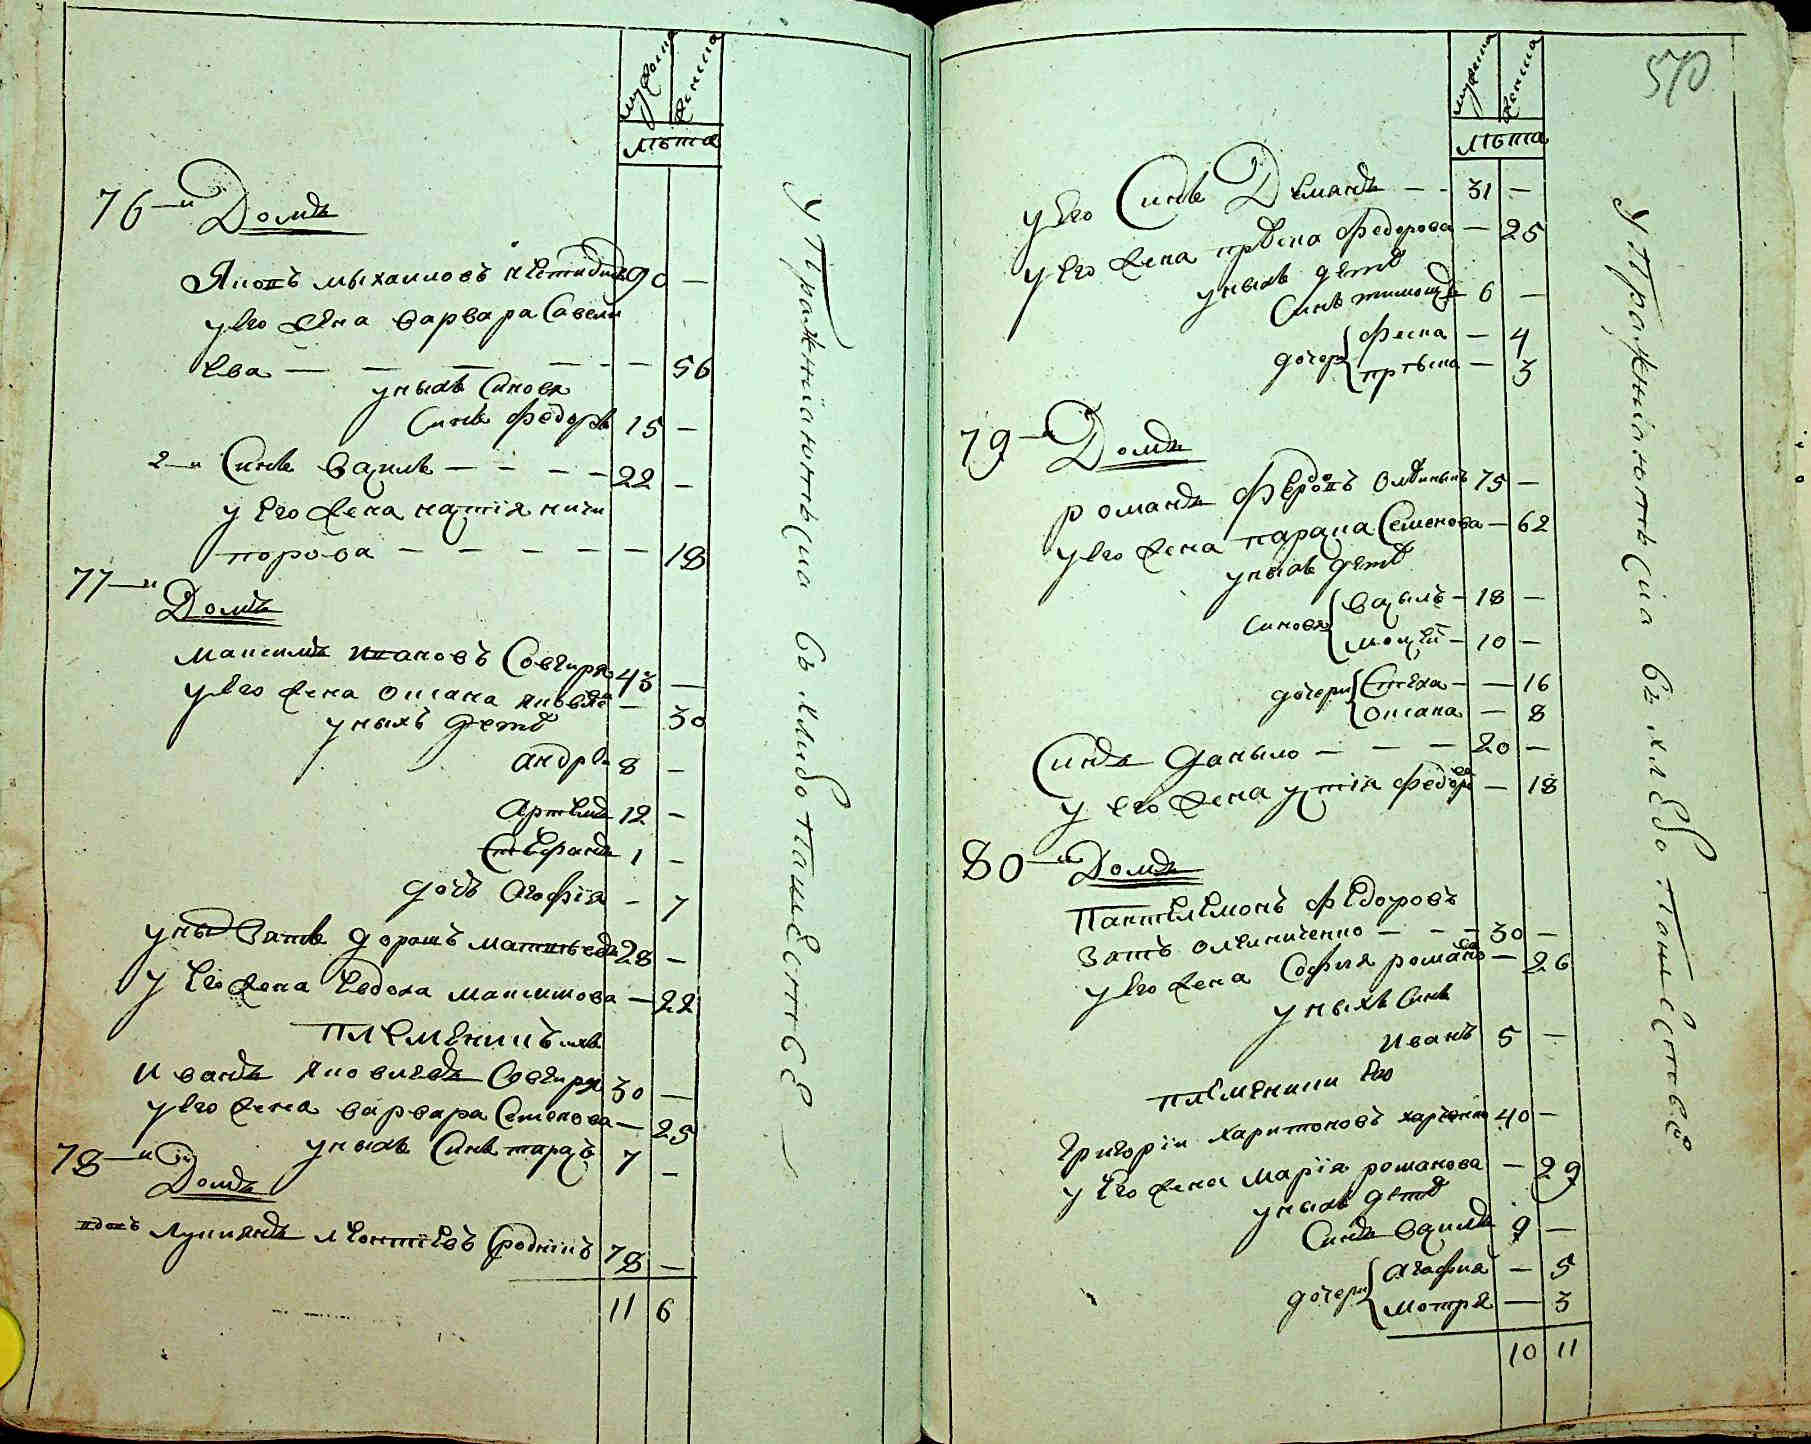 мужеска женска
Лѣта
76-и Домъ
Яковъ михаиловъ 90 —
у его жена варвара Савели
ева — — — — — 56
у ныхъ Синовя
Синъ федоръ 15 —
2-и Синъ василь — — — — 22 —
у его жена настія ничи
порова — — — — — 18
77-и
Домъ
максимъ ивановъ Совгиря 43 —
у его жена оксана яковле — 30
у ныхъ дети
андрѣи 8 —
Артемъ 12 —
Стефанъ 1 —
дочь Агофія — 7
у ныхъ Зять дорошъ матвѣевъ 28 —
у его жена Евдоха максимова — 22
племеникъ ихъ
иванъ яковлевъ Совгиря 30 —
у его жена варвара Семенова — 25
у ныхъ Синъ тарасъ 7 —
78-и
Домъ
вдовъ Лукиянъ леонтіевъ Сроднікъ 78 —
11 6
упражніаютьсіа въ хлибопашестве
570
мужеска женска
Лѣта
у его Синъ Деманъ — — 31 —
у его жена федорова — 25
у ныхъ дети
Синъ тимошъ 6 —
дочери феска — 4
— 3
79-и Домъ
романъ федоровъ 75 —
у его жена параска Семенова — 62
у ныхъ дети
Синовя василь — 18 —
мосѣй — 10 —
дочери Стеха — — 16
оксана — 8
Синъ данило — — — 20 —
у его жена устія федорова — 18
80-и Домъ
Пантелемонъ федоровъ
Зять омелниченко — — — 30 —
у его жена София романова — 26
у ныхъ Синъ
иванъ 5 —
племеники его
Григоріи харитоновъ харченко 40 —
у его жена марія романова — 29
у ныхъ дети
Синъ василь 9 —
дочери Агафия — 5
мотря — 3
10 11
упражніаютьсіа въ хлебопашестве